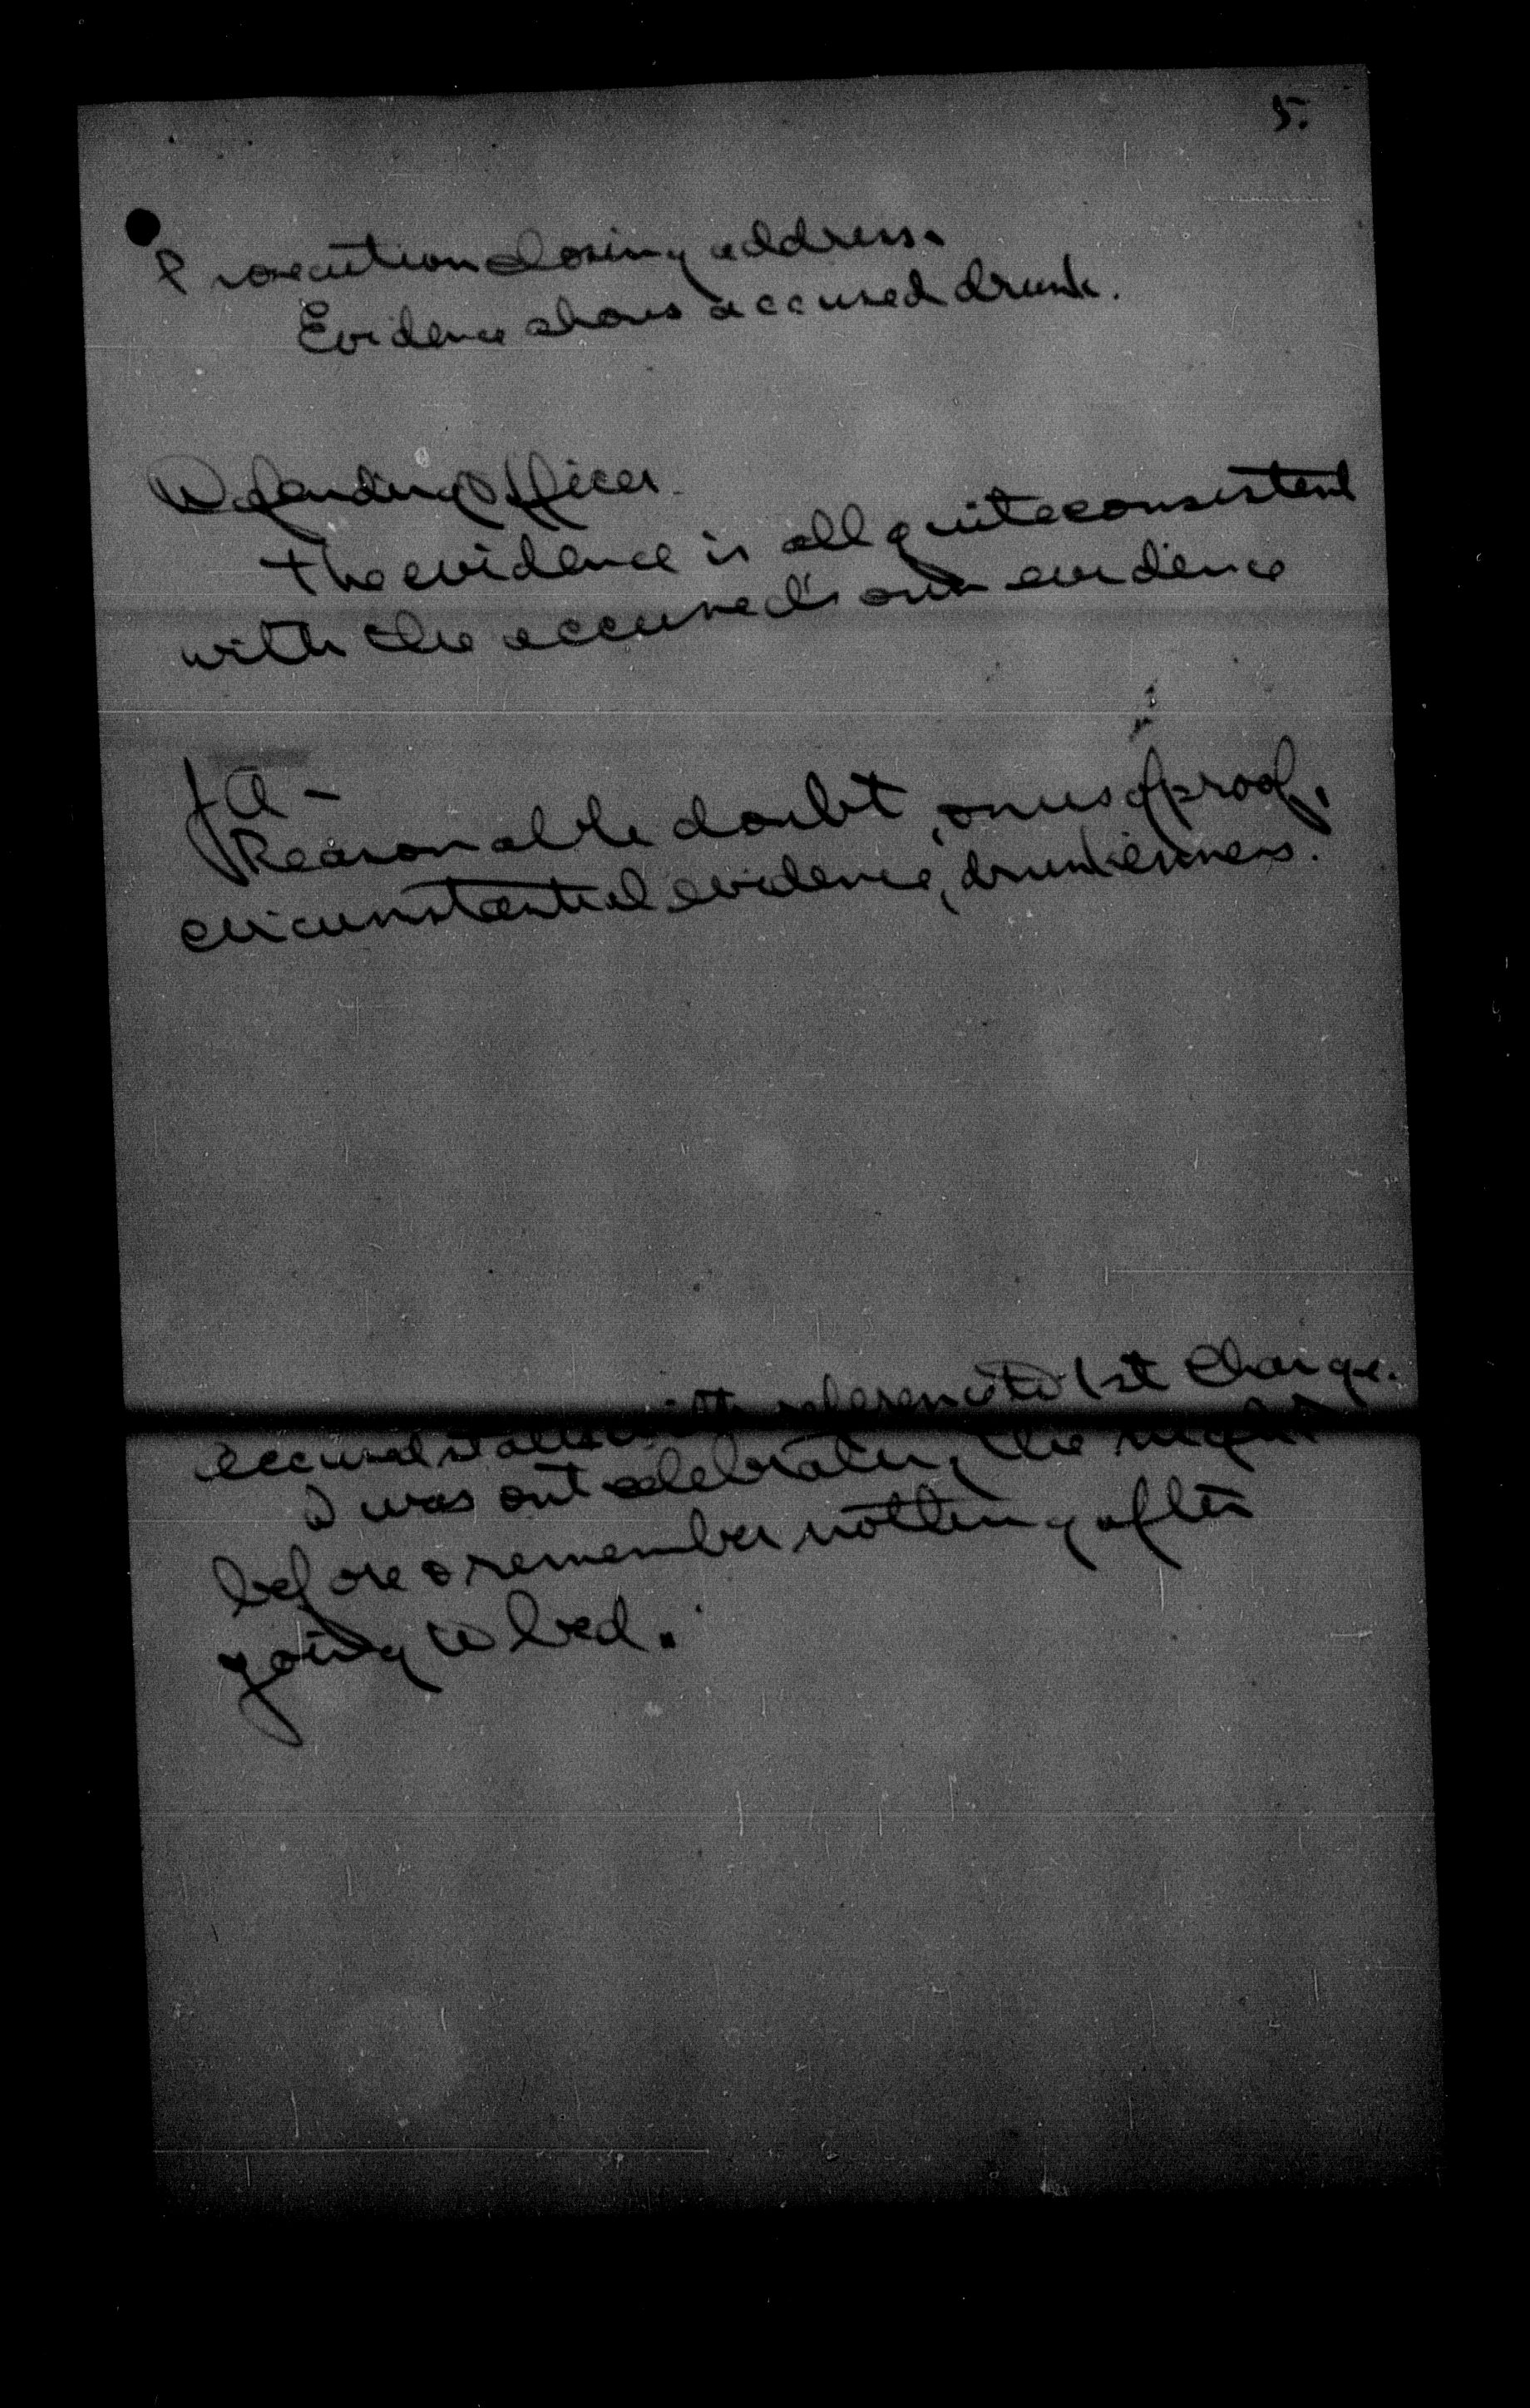 5.
Prosecution closing address.
Evidence shows accused drunk.
Defending Officer.
The evidence is all quite consistent
with the accused's own evidence
JA -
Reasonable doubt, onus of proof,
circumstantial evidence, drunkenness.
accused states with reference to 1st Charge.
I was out celebrating the night
before & remember nothing after
going to bed.